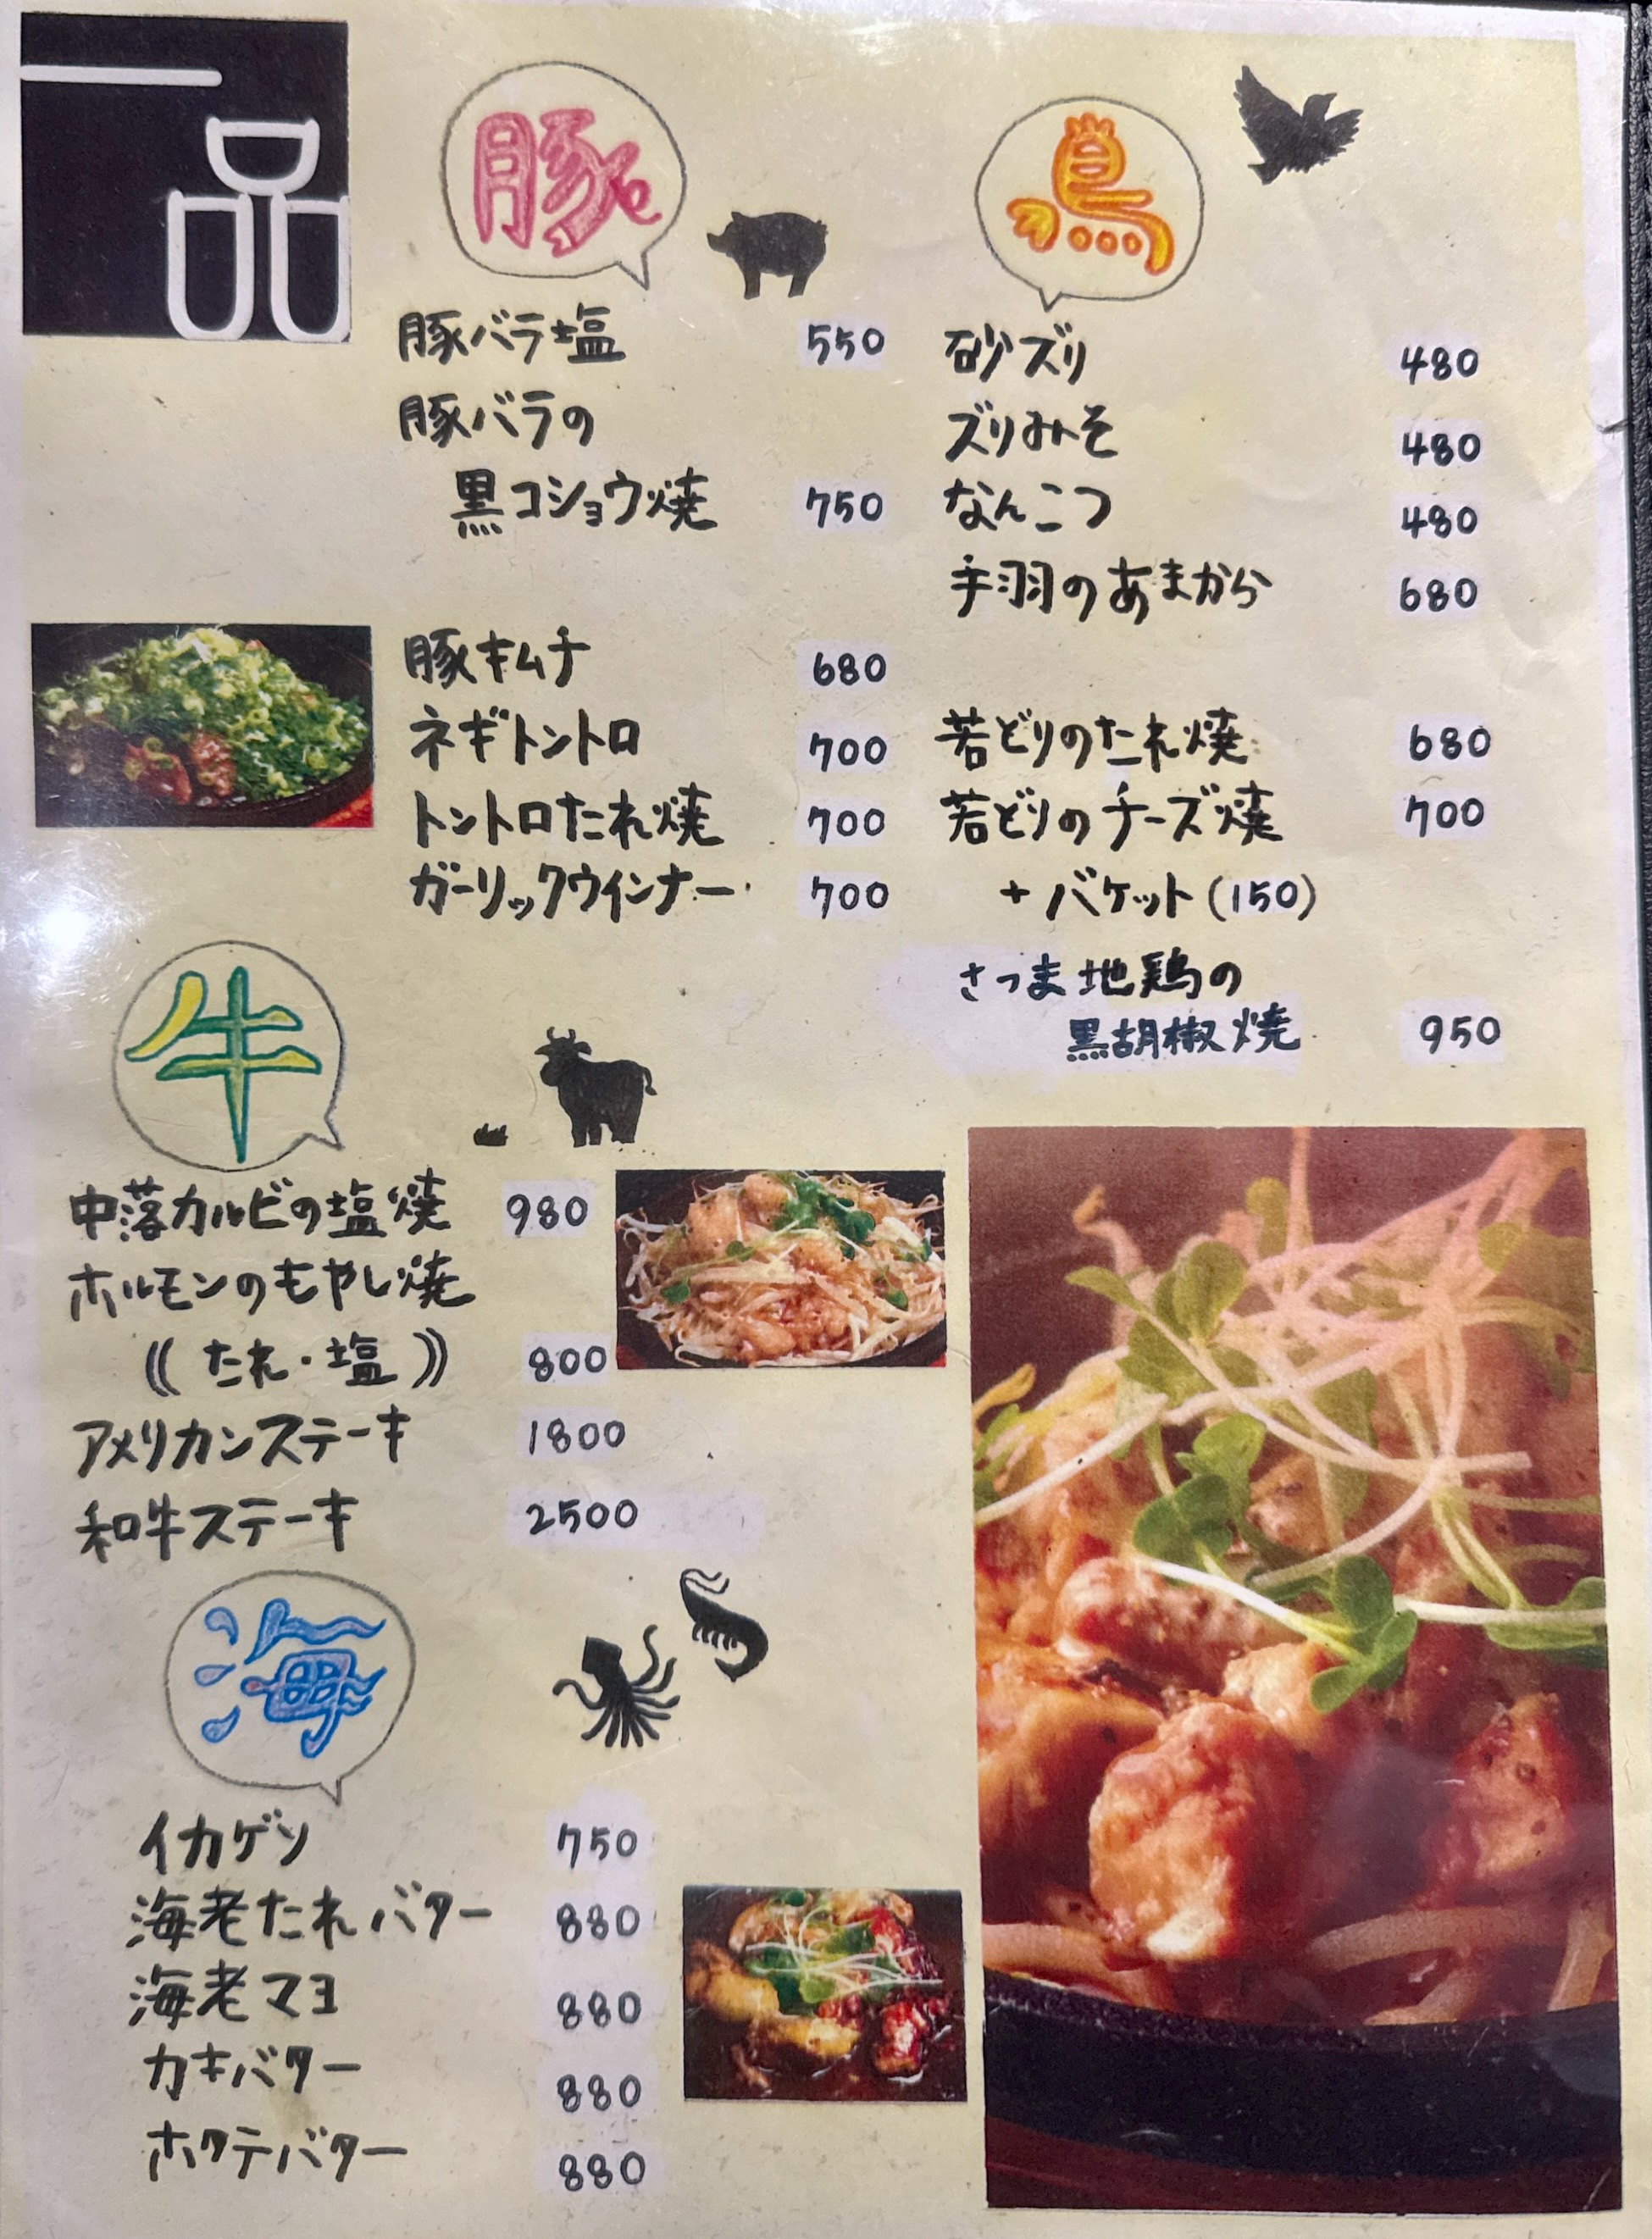 一品
豚
豚バラ塩 550
豚バラの
黒コショウ焼 750
豚キムチ 680
ネギトントロ 700
トントロたれ焼 700
ガーリックウインナー 700
鳥
砂ズリ 480
ズリみそ 480
なんこつ 480
手羽のあまから 680
若どりのたれ焼 680
若どりのチーズ焼 700
+バケット(150)
さつま地鶏の
黒胡椒焼 950
牛
中落カルビの塩焼 980
ホルモンのもやし焼
((たれ・塩)) 800
アメリカンステーキ 1800
和牛ステーキ 2500
海
イカゲソ 750
海老たれバター 880
海老マヨ 880
カキバター 880
ホタテバター 880